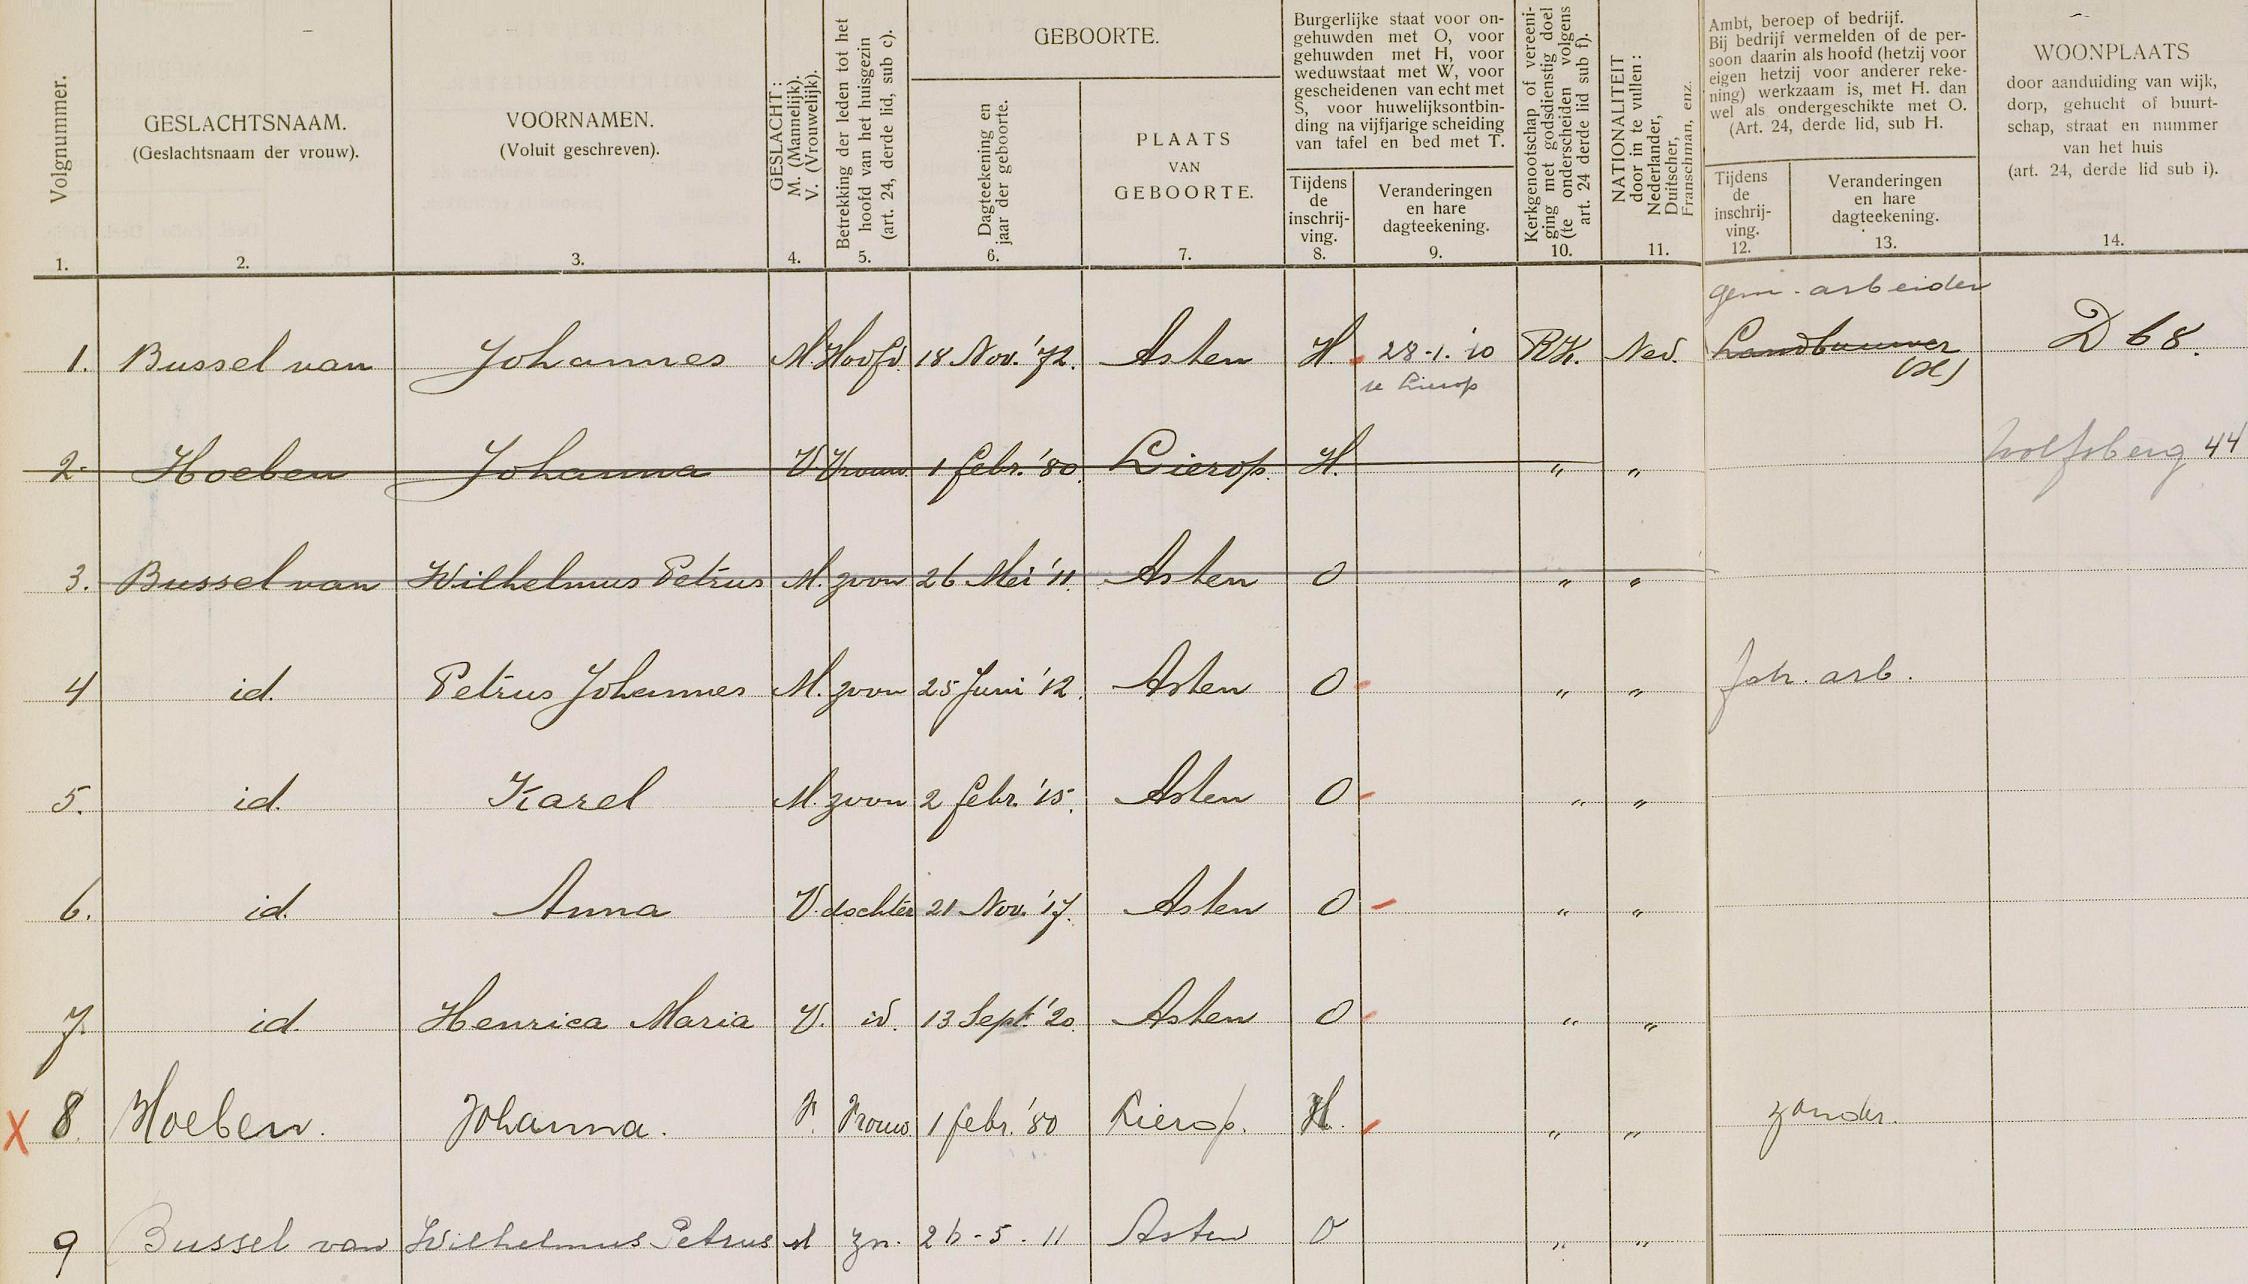 Volgnummer.
1.
GESLACHTSNAAM.
(Geslachtsnaam der vrouw).
2.
VOORNAMEN.
(Voluit geschreven).
3.
GESLACHT:
M. (Mannelijk).
V. (Vrouwelijk).
4.
Betrekking der leden tot het
hoofd van het huisgezin
(art. 24, derde lid, sub c).
5.
GEBOORTE.
Dagteekening en
jaar der geboorte.
6.
PLAATS
VAN
GEBOORTE.
7.
Burgerlijke staat voor on-
gehuwden met O, voor
gehuwden met H, voor
weduwstaat met W, voor
gescheidenen van echt met
S, voor huwelijksontbin-
ding na vijfjarige scheiding
van tafel en bed met T.
Tijdens
de
inschrij-
ving.
8.
Veranderingen
en hare
dagteekening.
9.
Kerkgenootschap of vereeni-
ging met godsdienstig doel
(te onderscheiden volgens
art. 24 derde lid sub f).
10.
NATIONALITEIT
door in te vullen:
Nederlander,
Duitscher,
Franschman, enz.
11.
Ambt, beroep of bedrijf.
Bij bedrijf vermelden of de per-
soon daarin als hoofd (hetzij voor
eigen hetzij voor anderer reke-
ning) werkzaam is, met H. dan
wel als ondergeschikte met O.
(Art. 24, derde lid, sub H.
Tijdens
de
inschrij-
ving.
12.
Veranderingen
en hare
dagteekening.
13.
WOONPLAATS
door aanduiding van wijk,
dorp, gehucht of buurt-
schap, straat en nummer
van het huis
(art. 24, derde lid sub i).
14.
gem. arbeider
1. Bussel van Johannes M. Hoofd. 18 Nov. '72. Asten H. 28-1-'10 R.K. Ned. Landbouwer D 68.
te Lierop (H)
2. Hoeben Johanna V. Vrouw. 1 febr. '80. Lierop. H. " " Wolfsberg 44
3. Bussel van Wilhelmus Petrus M. zoon 26 Mei '11. Asten O " "
4 id. Petrus Johannes M. zoon 25 Juni '12. Asten O " " fabr. arb.
5. id. Karel M. zoon 2 febr. '15. Asten O " "
6. id. Anna V. dochter 21 Nov. '17. Asten O " "
7. id. Henrica Maria V. id. 13 Sept. '20. Asten O " "
X 8. Hoeben. Johanna. V. Vrouw 1 febr. '80 Lierop. H. " " zonder.
9 Bussel van Wilhelmus Petrus M zn. 26-5-11 Asten O " "